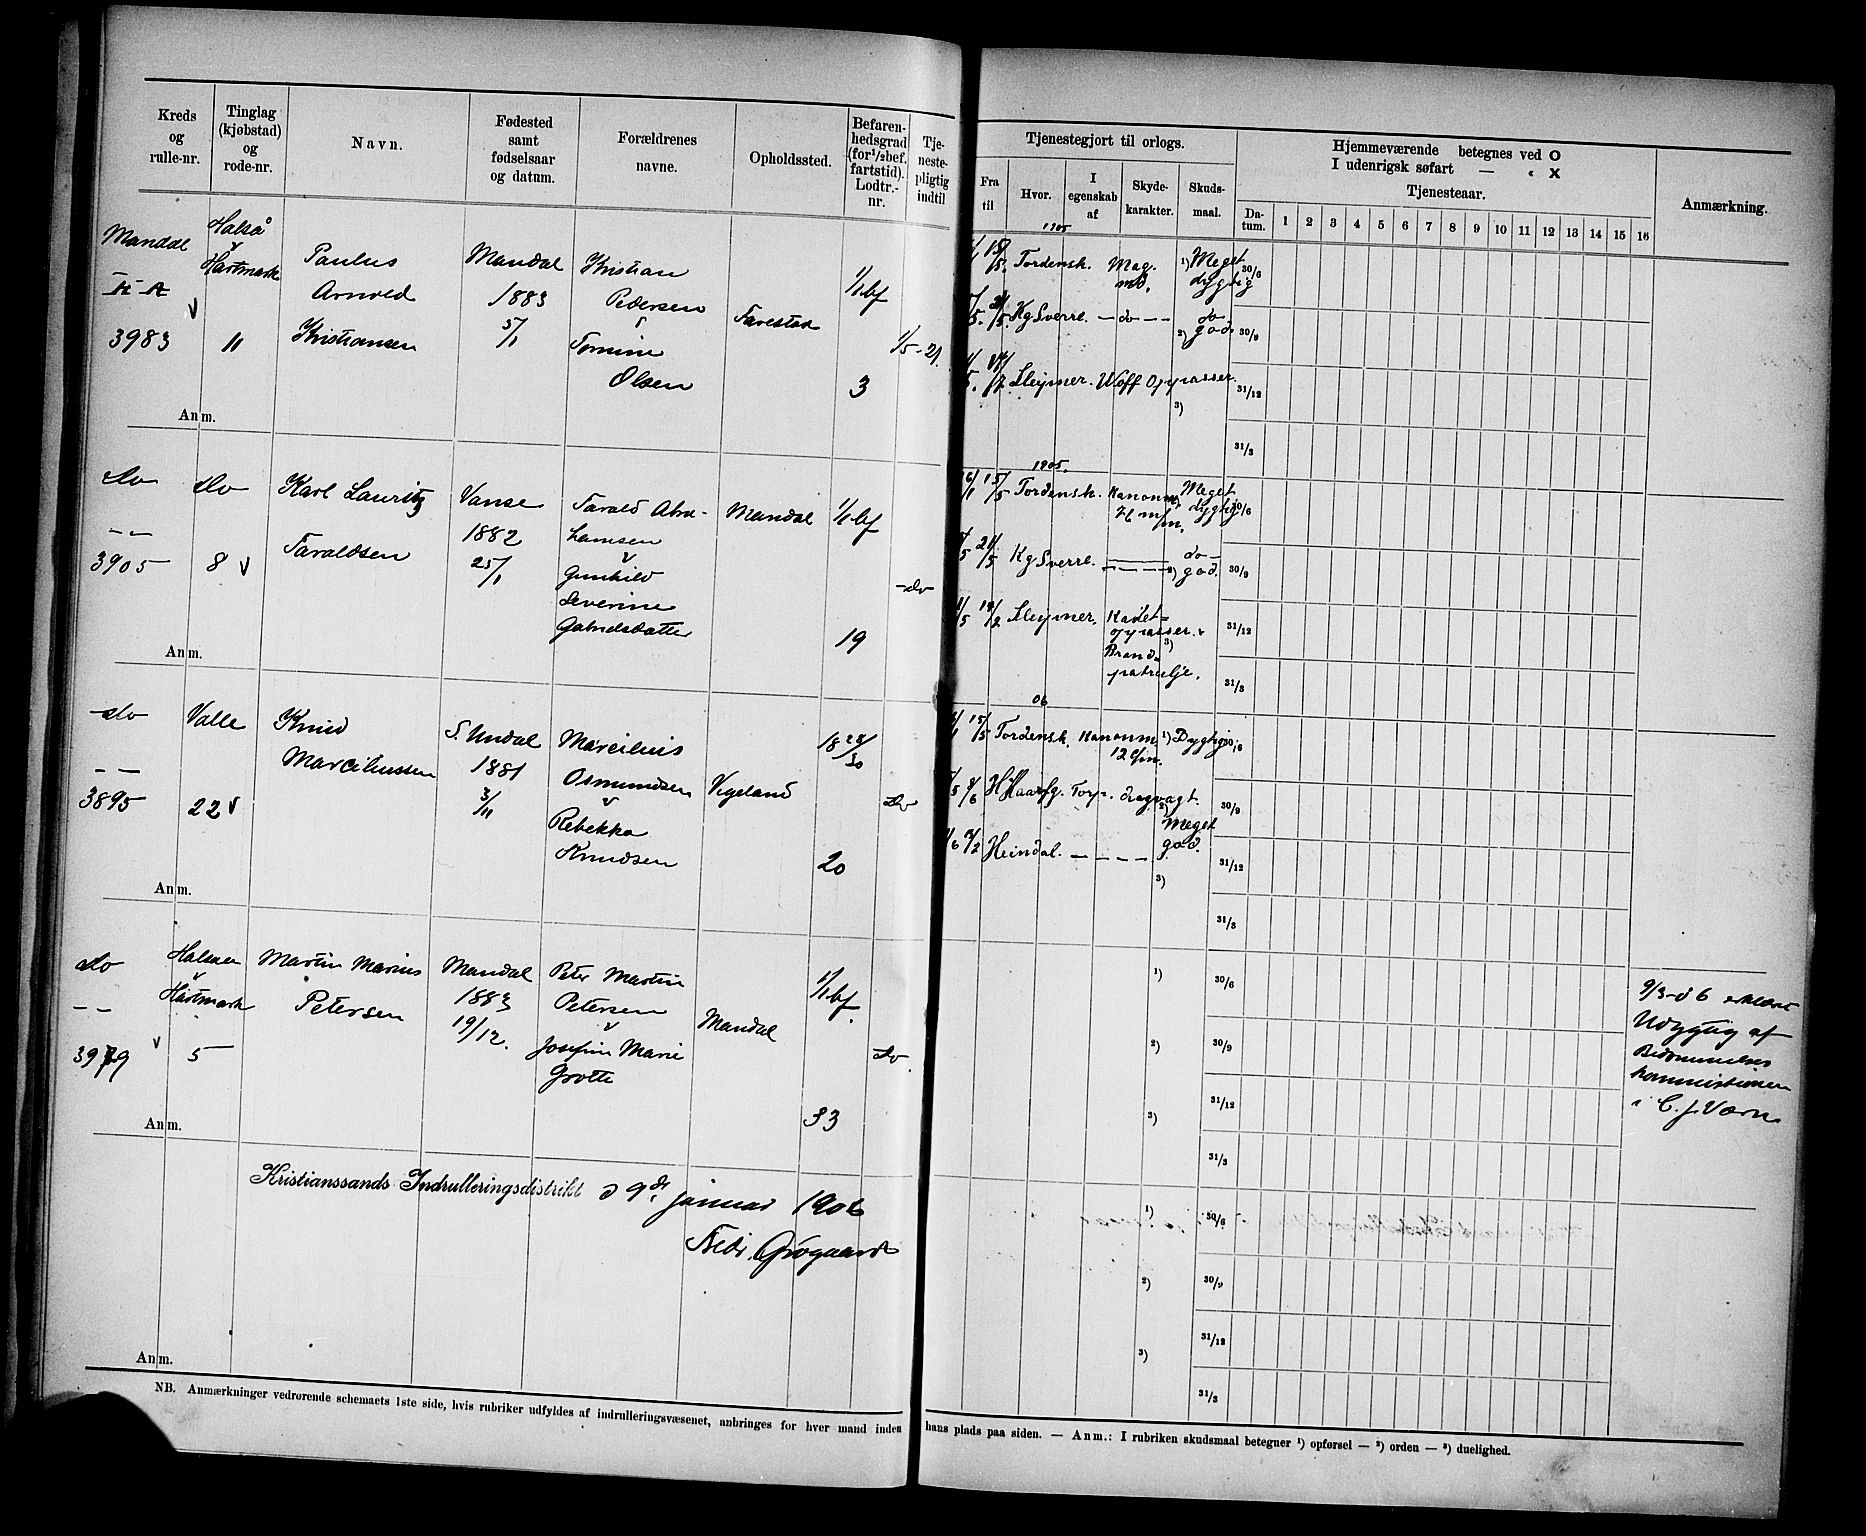 Kreds og rulle-nr.
Tinglag (kjøbstad) og rode-nr.
Navn.
Fødested samt fødselsaar og datum.
Forældrenes navne.
Opholdssted.
Befaren-hedsgrad (for 1/2 bef. fartstid). Lodtr.-nr.
Tje-neste-pligtig indtil
Tjenestegjort til orlogs.
Fra til
Hvor.
I egenskab af
Skyde-karakter.
Skuds-maal.
Hjemmeværende betegnes ved O
I udenrigsk søfart — « X
Tjenesteaar.
Da-tum.
1 2 3 4 5 6 7 8 9 10 11 12 13 14 15 16
Anmærkning.
Mandal
3983
Halså
v
Hartmark
11
Paulus
Arnold
Kristiansen
Mandal
1883
5/1
Kristian
Pedersen
Tomine
Olsen
Farestad
1/1 bf
3
1/5-21
Anm.
1905
Tordensk. Mag. md. 1) Meget dygtig
Kg Sverre. — do — — do — 2) god.
Sleipner. Woff Oppasser. 3)
30/6
30/9
31/12
31/3
do
— —
3905
do
8 v
Karl Lauritz
Taraldsen
Vanse
1882
25/1
Tarald Abra-
hamsen
v
Gunhild
Severine
Gabrielsdatter
Mandal
1/1 bf
19
do
Anm.
1905.
Tordensk. Kanonm. 76 m/m. Meget dygtig
Kg Sverre. — — — — do — 2) god.
Sleipner. Kadet=
oppasser.
3)
Brand=
patrulje.
30/6
30/9
31/12
31/3
do
— —
3895
Valle
22 v
Knud
Marcilussen
S. Undal
1881
3/11
Marcilius
Osmundsen
v
Rebekka
Knudsen
Vigeland
18 28/30
20
do
Anm.
06
Tordensk. Kanonm. 12 c/m. 1) Dygtig
H Haarfg. Torp. dagvagt.
2) Meget god.
Heimdal. — — — —
3)
30/6
30/9
31/12
31/3
do
— —
3979
Halsaa
v
Hartmark
5
Martin Marius
Petersen
Mandal
1883
19/12.
Peter Martin
Petersen
v
Josefine Marie
Grotte
Mandal
1/1 bf.
33
do
Anm.
1)
2)
3)
30/6
30/9
31/12
31/3
9/3-06 erklæret
Udygtig af
Bedømmelses
kommissionen
i C. J. Værn
Kristianssands Indrulleringsdistrikt d 9de januar 1906
Fredr. Grøgaard
1)
2)
3)
30/6
30/9
31/12
31/3
Anm.
NB. Anmærkninger vedrørende schemaets 1ste side, hvis rubriker udfyldes af indrulleringsvæsenet, anbringes for hver mand inden hans plads paa siden. — Anm.: I rubriken skudsmaal betegner ¹) opførsel — ²) orden — ³) duelighed.